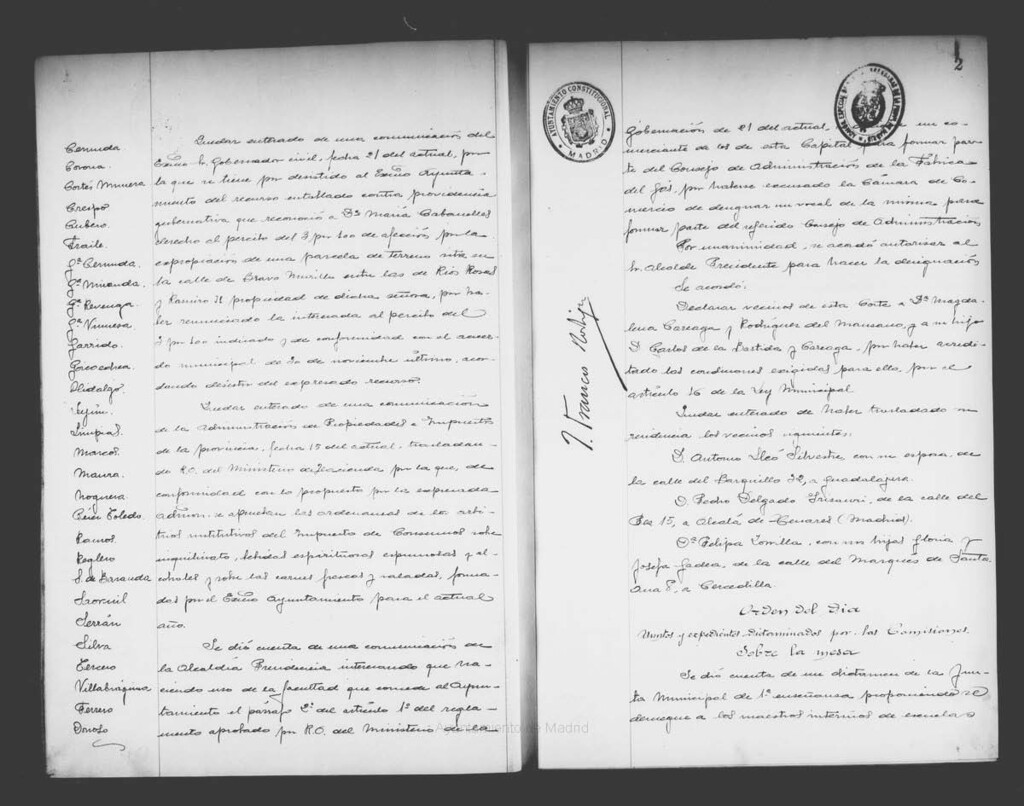 Cernuda
Corona
Cortés Munera
Crespo
Cubero
Fraile
Gª Cernuda
Gª Miranda
Gª Revenga
Gª Vinuesa
Garrido
Goicoechea
Hidalgo
Limpias
Marcos
Maura
Noguera
Pérez Toledo
Ramos
Reglero
S. de Baranda
Serrán
Silva
Tercero
Villabrágima
Ferrero
Donoso
Quedar enterado de una comunicación del
Excmo Sr. Gobernador civil, fecha 21 del actual, por
la que se tiene por desistido al Excmo Ayunta-
miento del recurso entablado contra providencia
gubernativa que reconoció a Dª María Cabanelles
derecho al percibo del 3 por 100 de afección por la
expropiación de una parcela de terreno sita en
la calle de Bravo Murillo entre las de Ríos Rosas
y Ramiro II propiedad de dicha señora, por ha-
ber renunciado la interesada al percibo del
3 por 100 indicado y de conformidad con el acuer-
do municipal de 20 de noviembre último, acor-
dando desistir del expresado recurso.
Quedar enterado de una comunicación
de la Administración de Propiedades e Impuestos
de la provincia, fecha 15 del actual, trasladan-
do R.O. del Ministerio de Hacienda por la que, de
conformidad con lo propuesto por la expresada
Admon. se aprueban las ordenanzas de los arbi-
trios sustitutivos del Impuesto de Consumos sobre
inquilinato, bebidas espirituosas espumosas y al-
coholes y sobre las carnes frescas y saladas, forma-
das por el Excmo Ayuntamiento para el actual
año.
Se dió cuenta de una comunicación de
la Alcaldía Presidencia interesando que ha-
ciendo uso de la facultad que concede al Ayun-
tamiento el párrafo 2º del artículo 1º del regla-
mento aprobado por R.O. del Ministerio de la
2
AYUNTAMIENTO CONSTITUCIONAL
MADRID
Gobernación de 21 del actual, un co-
merciante de los de esta Capital para formar par-
te del Consejo de Administración de la Fábrica
del Gas, por haberse excusado la Cámara de Co-
mercio de designar un vocal de la misma para
formar parte del referido Consejo de Administración
Por unanimidad, se acordó autorizar al
Sr. Alcalde Presidente para hacer la designación
Se acordó:
Declarar vecinos de esta Corte a Dª Magda-
lena Careaga y Rodríguez del Manzano, y a su hijo
D. Carlos de la Bastida y Careaga, por haber acredi-
tado las condiciones exigidas para ello, por el
artículo 16 de la Ley Municipal
Quedar enterado de haber trasladado su
residencia los vecinos siguientes:
D. Antonio Silvestre, con su esposa, de
la calle del Barquillo 32, a Guadalajara.
D. Pedro Delgado, de la calle del
Pez 15, a Alcalá de Henares (Madrid).
Dª Felipa, con sus hijas Gloria y
Josefa Gadea, de la calle del Marqués de Santa
Ana 8, a Cercedilla.
Orden del Dia
Asuntos y expedientes dictaminados por las Comisiones.
Sobre la mesa
Se dió cuenta de un dictamen de la Jun-
ta Municipal de 1ª enseñanza proponiendo se
deniegue a los maestros interinos de escuelas
Ayuntamiento de Madrid